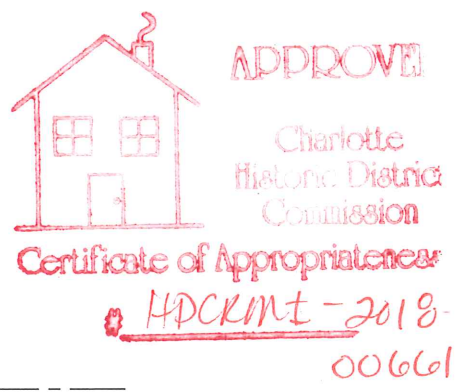 APPROVED
Charlotte
Historic District
Commission
Certificate of Appropriateness
# HDCRMI-2018-
00661